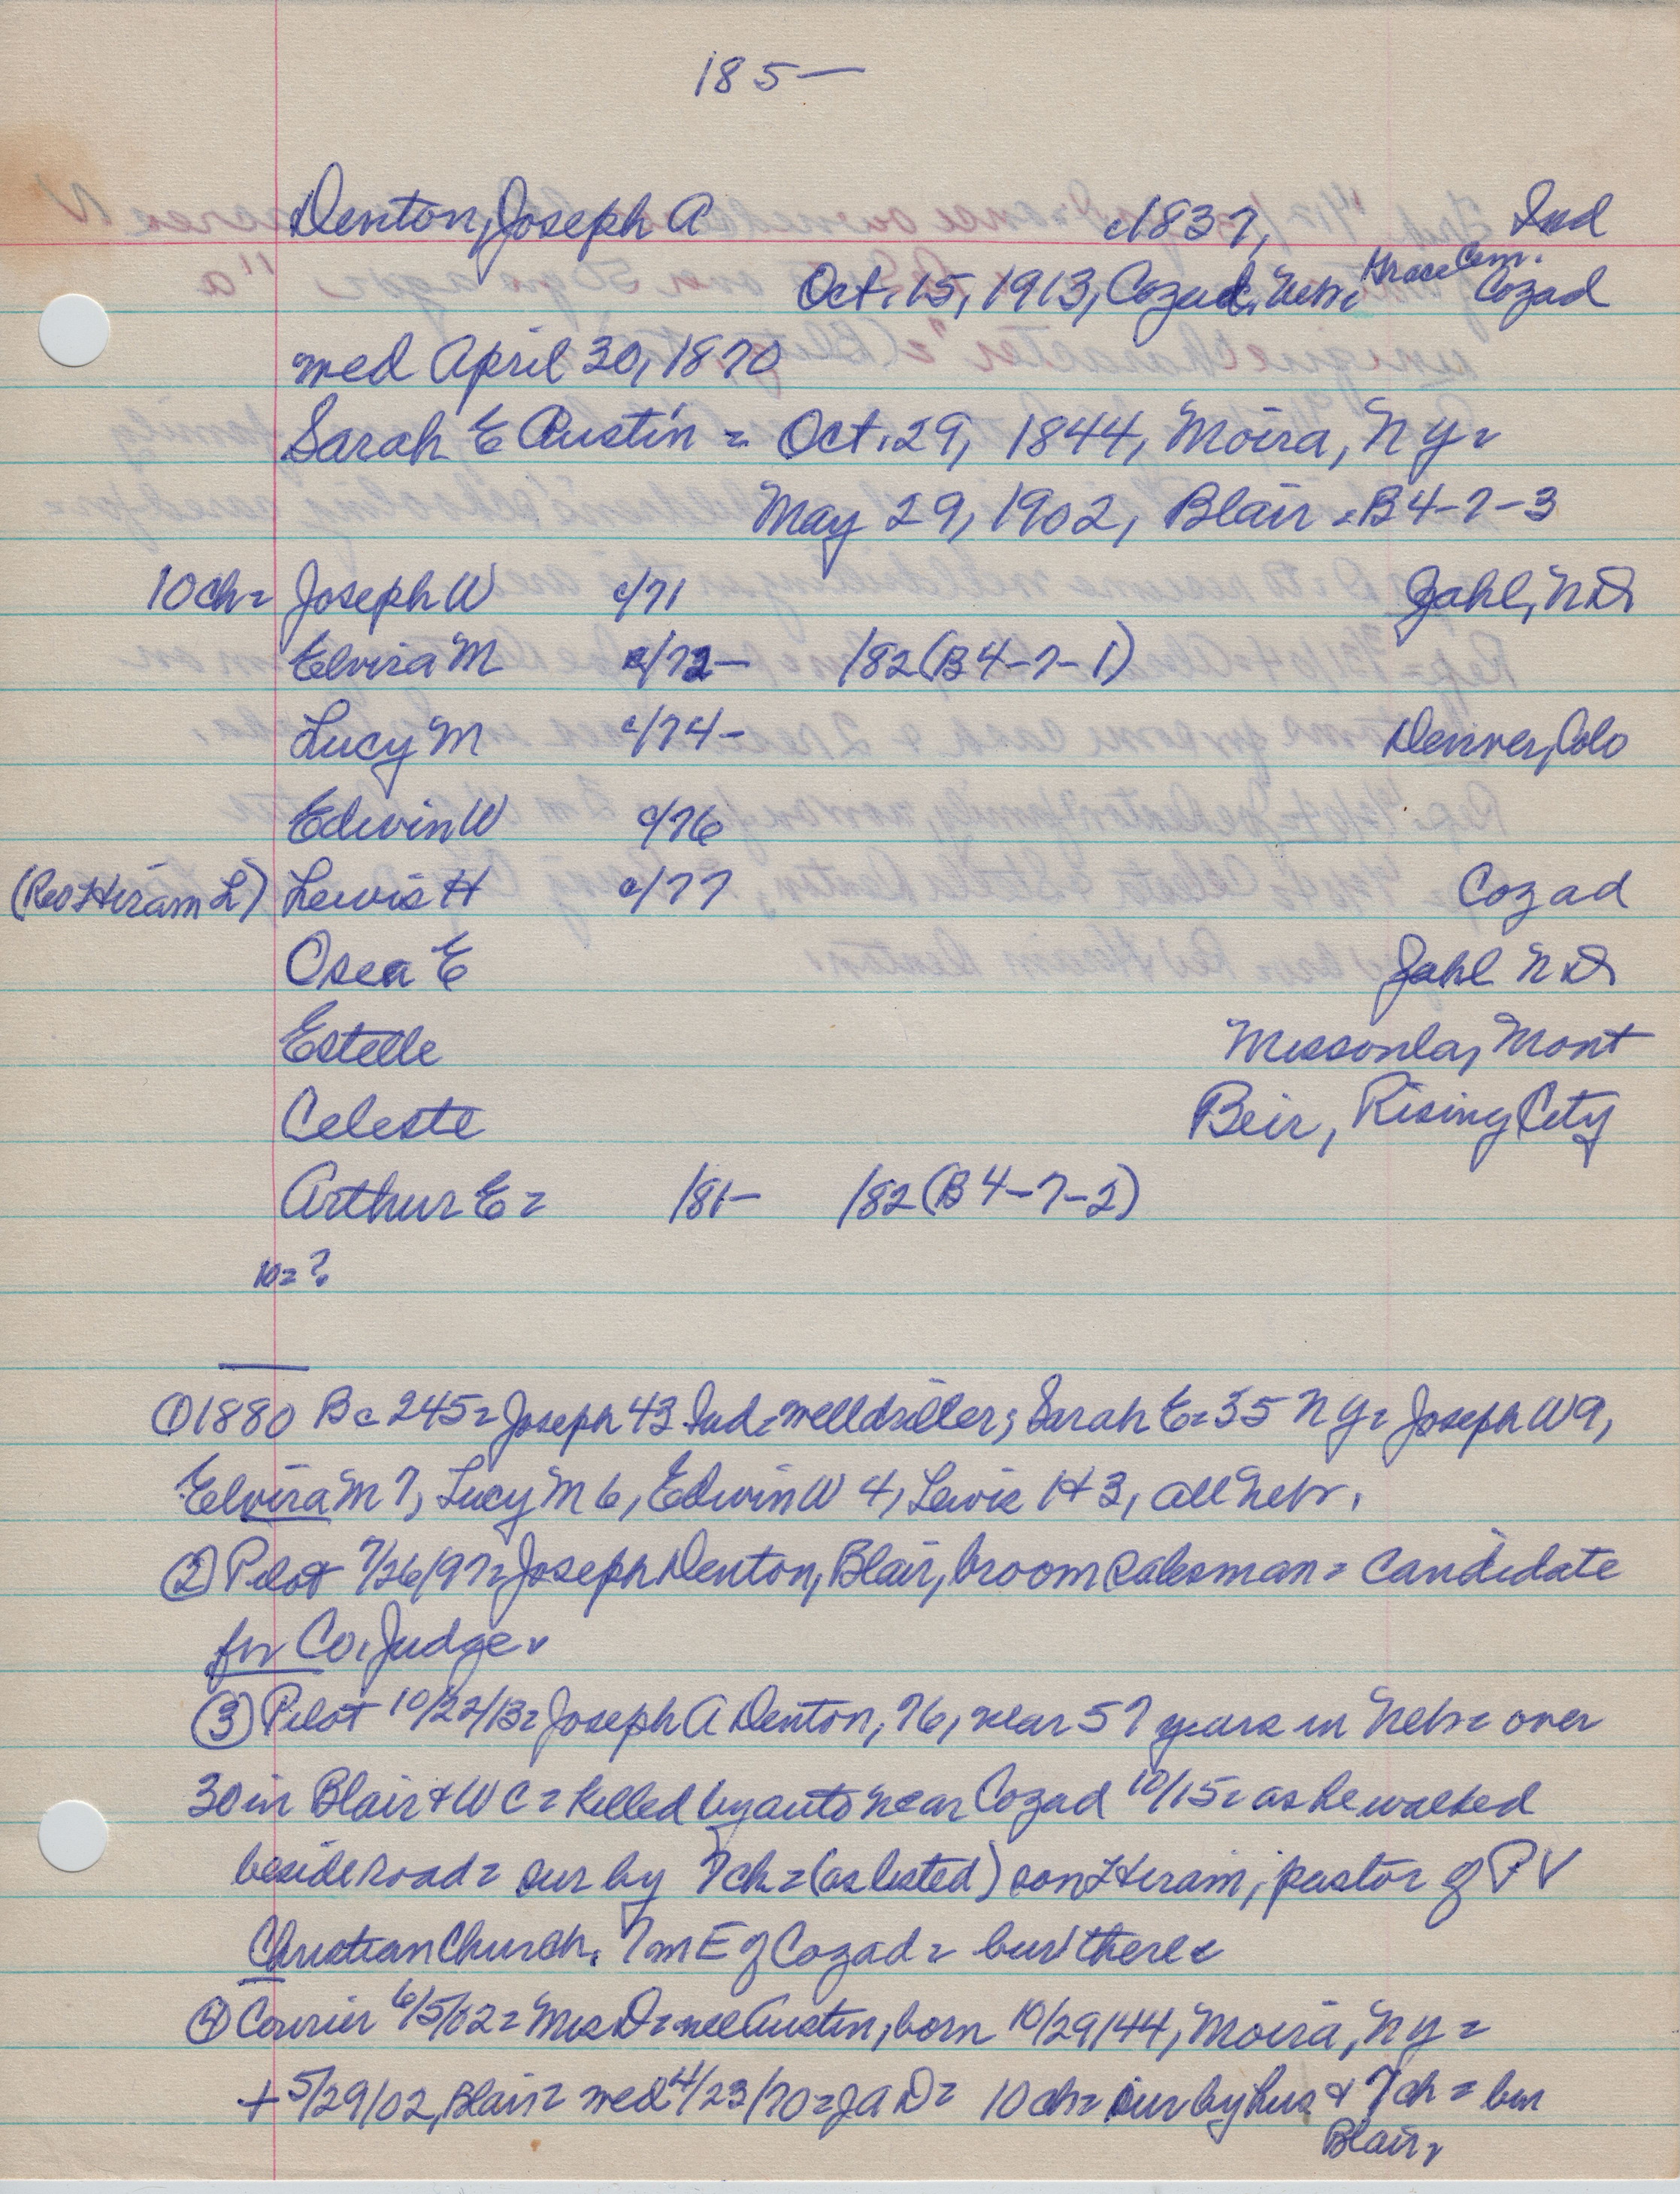 185—
Denton, Joseph A c1837, Ind
Oct. 15, 1913, Cozad, Nebr. Grace Cem. Cozad
med April 30, 1870
Sarah E Austin = Oct. 29, 1844, Moira, N Y =
May 29, 1902, Blair = B4-7-3
10 ch = Joseph W c/71 Zahl, N D
Elvira M c/72— /82 (B4-7-1)
Lucy M c/74— Denver, Colo
Edwin W c/76
(Rev Hiram L) Lewis H c/77 Cozad
Osea E Zahl N D
Estelle Missoula, Mont
Celeste Beir, Rising City
Arthur E = /81— /82 (B4-7-2)
10 = ?
① 1880 Bc 245 = Joseph 43 Ind = welldriller; Sarah E = 35 N Y = Joseph W 9,
Elvira M 7, Lucy M 6, Edwin W 4, Lewis H 3, all Nebr.
② Pilot 7/26/97 = Joseph Denton, Blair, broom salesman = candidate
for Co. Judge.
③ Pilot 10/22/13 = Joseph A Denton, 76, near 57 years in Nebr = over
30 in Blair & W C = killed by auto near Cozad 10/15 = as he walked
beside road = sur by 7 ch = (as listed) son Hiram, pastor of P V
Christian Church. 7 m E of Cozad = bur there =
④ Courier 6/5/02 = Mrs D = nee Austin, born 10/29/44, Moira, N Y =
+ 5/29/02, Blair = med 4/23/70 = J A D = 10 ch = sur by hus & 7 ch = bur
Blair.